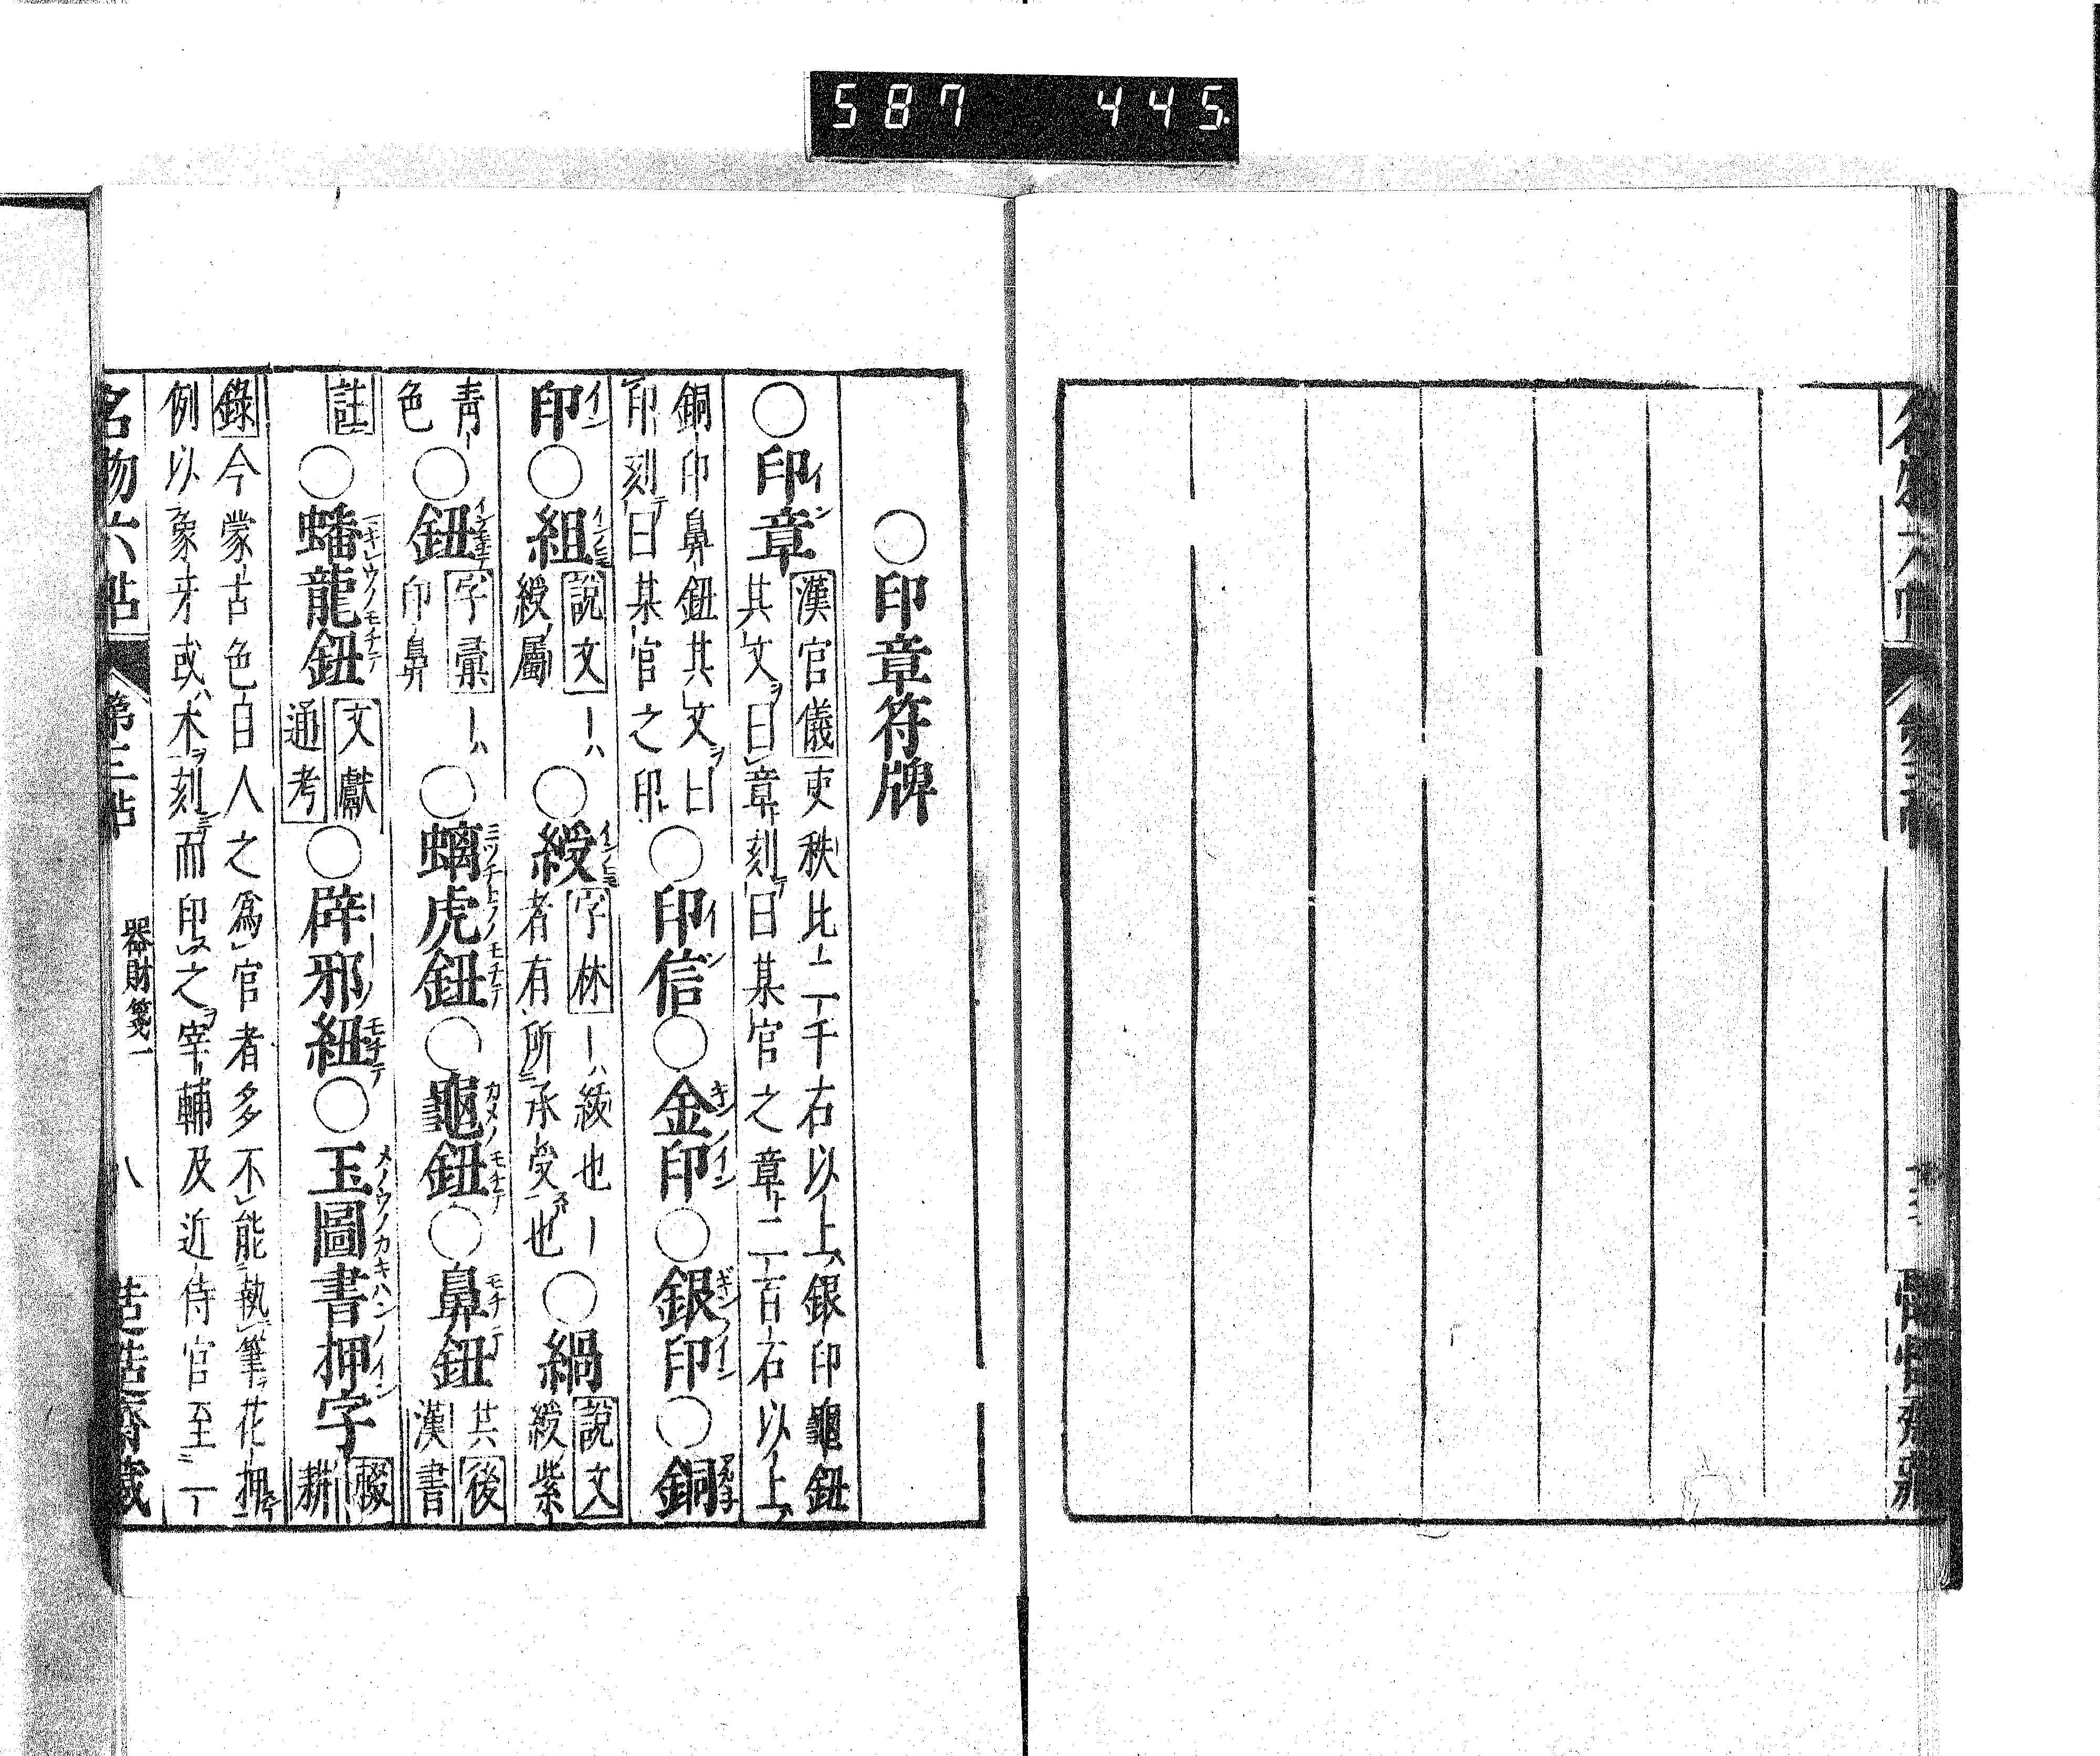 587 445.
○印章符牌
○印章漢官儀吏秩比二千石以上銀印龜鈕
其文曰章刻曰某官之章二百石以上
銅印鼻鈕其文曰
印刻曰某官之印○印信○金印○銀印○銅
印○組説文|ハ
綬屬○綬字林|ハ紱也|
者有所承受也○緺説文
綬紫
青
色○鈕字彙|ハ
印鼻○螭虎鈕○龜鈕○鼻鈕共後
漢書
註○蟠龍鈕文獻
通考○辟邪紐○玉圖書押字輟
耕
錄今蒙古色目人之爲官者多不能執筆花押
例以象牙或木刻而印之宰輔及近侍官至一
名物六帖 第三帖 器財箋一 八